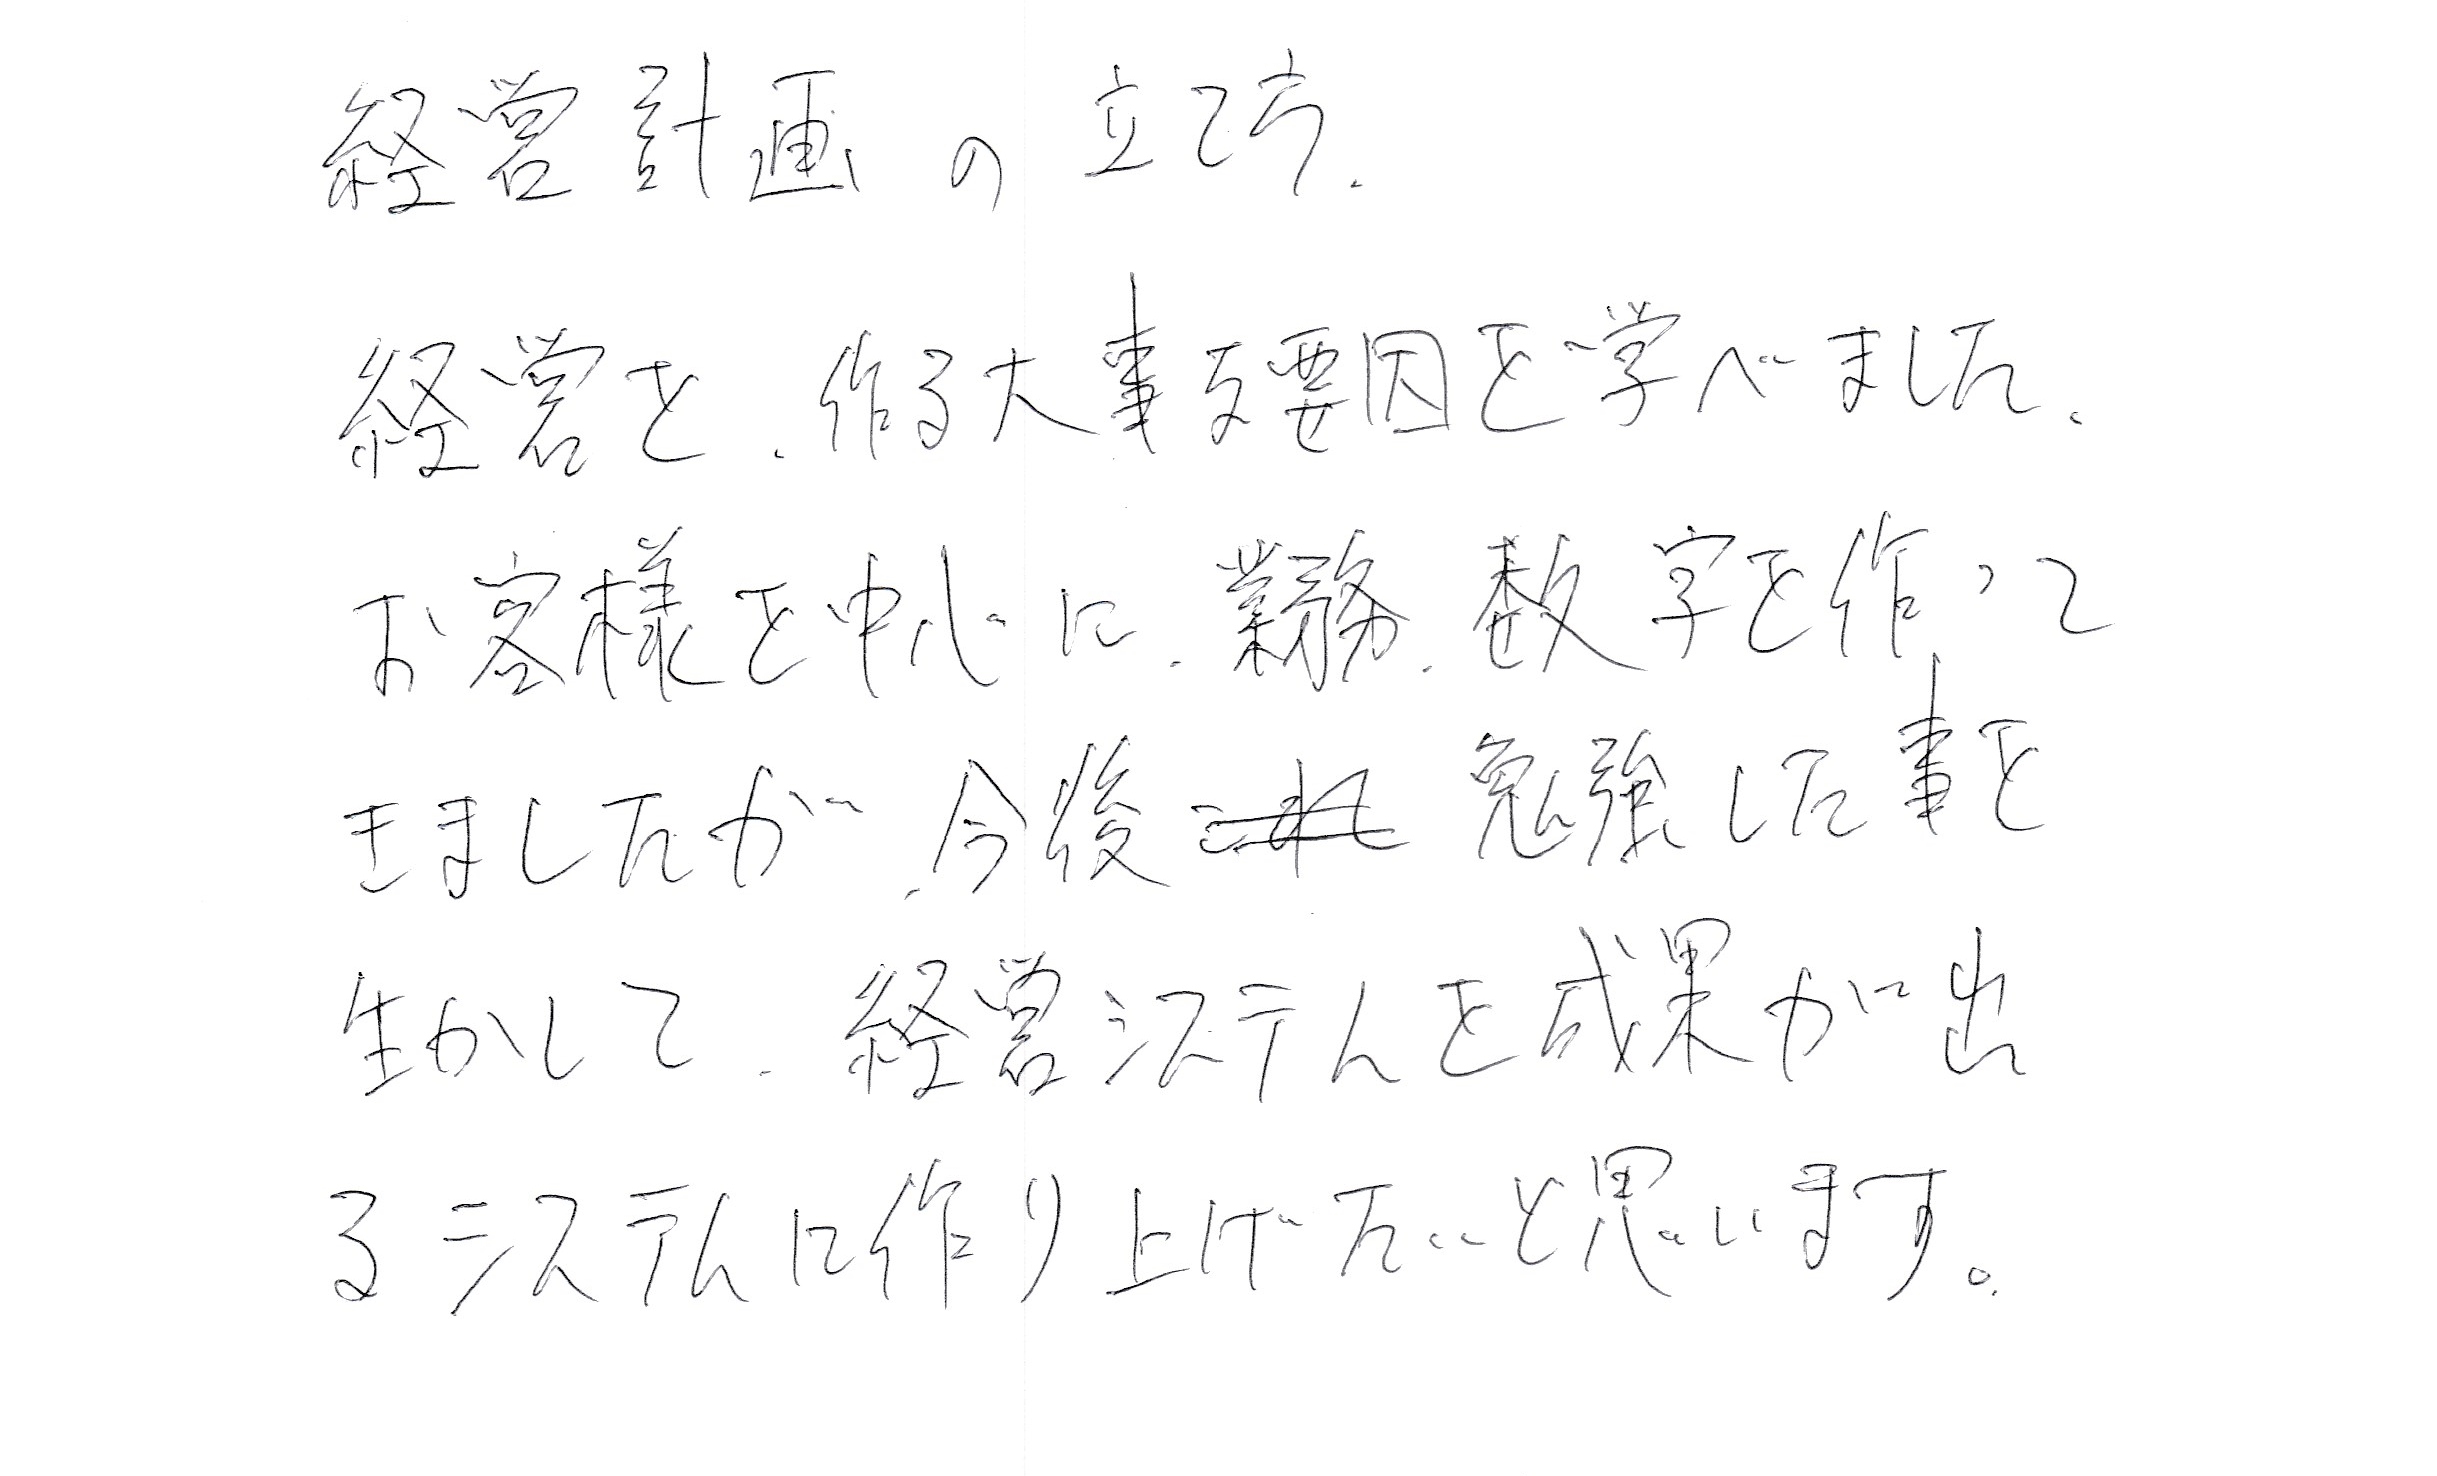 経営計画の立て方、
経営を、作る大事な要因を学べました、
お客様を中心に、業務、数字を作って
きましたが、今後 勉強した事を
生かして、経営システムを成果が出
るシステムに作り上げたいと思います。